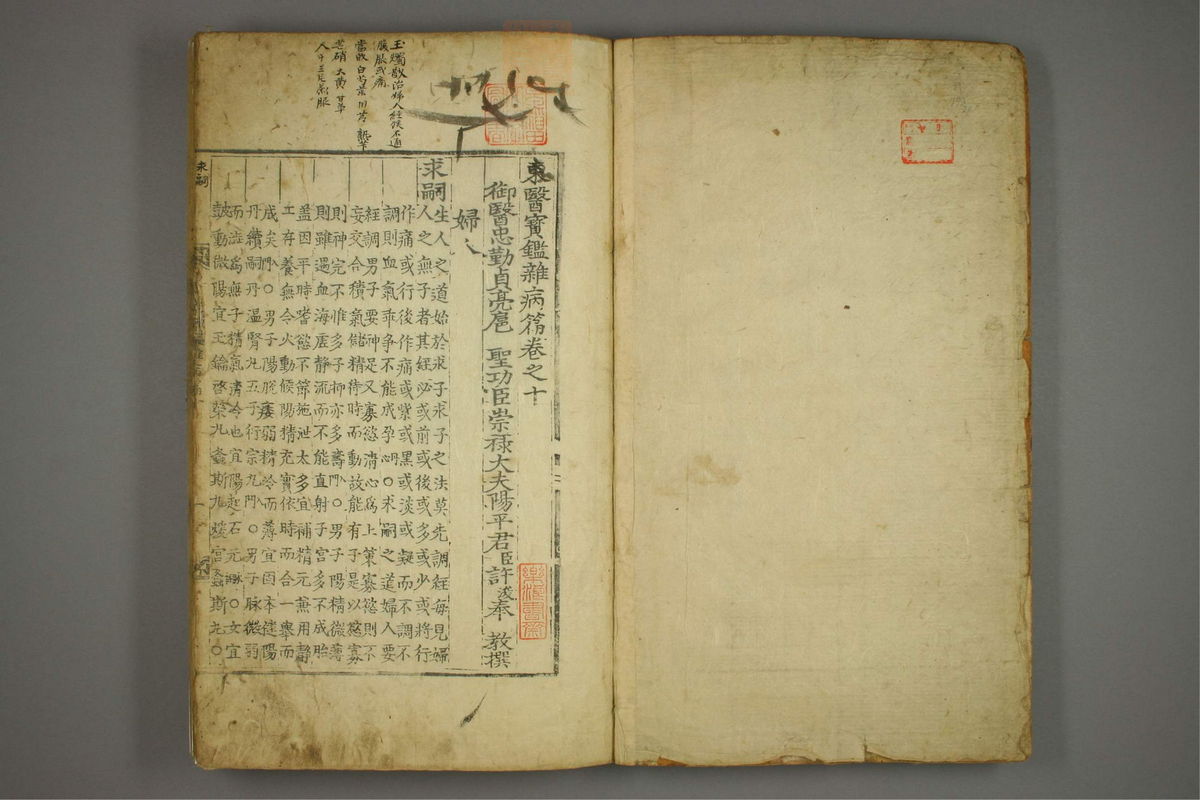 玉燭散治婦人經候不通
腹脹或痛
當歸 白芍藥 川芎 熟芐
芒硝 大黃 甘草
東醫寶鑑雜病篇卷之十
御醫忠勤貞亮扈 聖功臣崇祿大夫陽平君臣許浚奉 教撰
婦人
求嗣
生人之道始於求子求子之法莫先調經每見婦
人之無子者其經必或前或後或多或少或將行
作痛或行後作痛或紫或黑或淡或凝而不調不
調則血氣乖爭不能成孕丹心○求嗣之道婦人要
經調男子要神足又寡慾淸心爲上策寡慾則不
妄交合積氣儲精待時而動故能有子是以慾寡
則神完不惟多子抑亦多壽入門○男子陽精微薄
則雖遇血海虛靜流而不能直射子宮多不成胎
盖因平時嗜慾不節施泄太多宜補精元兼用靜
工存養無令火動候陽精充實依時而合一擧而
成矣入門○男子陽脫痿弱精冷而薄宜固本健陽
丹續嗣丹溫腎丸五子衍宗丸入門○男子脉微弱
而澁爲無子精氣淸冷也宜陽起石元脉經○女宜
鼓動微陽宜玉鑰啓榮丸螽斯丸煖宮螽斯丸○
求嗣
樂浪書齋